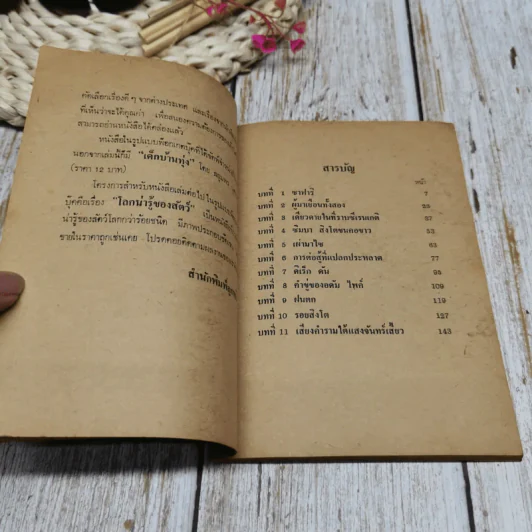 คัดเลือกเรื่องดีๆ จากต่างประเทศ และเรื่อง
ที่เห็นว่าจะได้คุณค่า เพื่อสนองความต้องการ
สามารถอ่านหนังสือได้คล่องแล้ว
หนังสือในรูปแบบพ็อกเกตบุ๊คที่ได้จัด
นอกจากเล่มนี้ก็มี "เด็กบ้านทุ่ง" โดย
(ราคา 12 บาท)
โครงการสำหรับหนังสือเล่มต่อไป ในรูป
บุ๊คคือเรื่อง "โลกน่ารู้ของสัตว์" เป็นหนังสือ
น่ารู้ของสัตว์โลกกว่าร้อยชนิด มีภาพประกอบ
ขายในราคาถูกเช่นเคย โปรดคอยติดตาม
สำนักพิมพ์
สารบัญ
หน้า
บทที่ 1 ซาฟารี 7
บทที่ 2 ผู้มาเยือนทั้งสอง 25
บทที่ 3 เดียวดายในที่ราบซีเรนเกติ 37
บทที่ 4 ซิมบา สิงโตขนคอขาว 53
บทที่ 5 เผ่ามาไซ 63
บทที่ 6 การต่อสู้ที่แปลกประหลาด 77
บทที่ 7 ดิเร็ก ดัน 95
บทที่ 8 คำขู่ของอดัม ไพค์ 109
บทที่ 9 ฝนตก 119
บทที่ 10 รอยสิงโต 127
บทที่ 11 เสียงคำรามใต้แสงจันทร์เสี้ยว 143